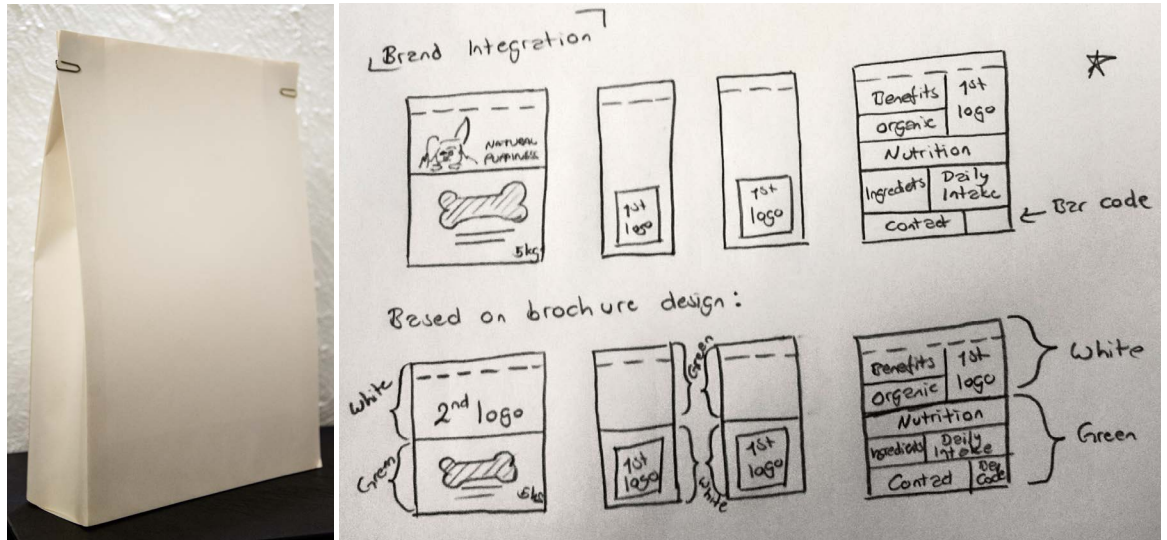 Brand Integration
NATURAL
PUPPINESS
5kg
1st
logo
1st
logo
Benefits
1st
logo
Organic
Nutrition
Ingrediets
Daily
Intake
Contact
← Bar code
Based on brochure design:
White
2nd logo
Green
5kg
Green
White
1st
logo
1st
logo
Benefits
1st
logo
Organic
Nutrition
Ingrediets
Daily
Intake
Contact
Code
White
Green